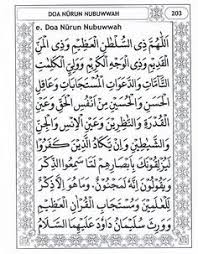 DOA NŪRUN NUBUWWAH
203
e. Doa Nūrun Nubuwwah
اَللّٰهُمَّ ذِى السُّلْطٰنِ الْعَظِيْمِ وَذِى الْمَنِّ
الْقَدِيْمِ وَذِى الْوَجْهِ الْكَرِيْمِ وَوَلِيِّ الْكَلِمٰتِ
التَّآمَّاتِ وَالدَّعَوَاتِ الْمُسْتَجَابَاتِ وَعَاقِلِ
الْحَسَنِ وَالْحُسَيْنِ مِنْ اَنْفُسِ الْحَقِّ وَعَيْنِ
الْقُدْرَةِ وَالنَّاظِرِيْنَ وَعَيْنِ الْاِنْسِ وَالْجِنِّ
وَالشَّيٰطِيْنِ وَاِنْ يَّكَادُ الَّذِيْنَ كَفَرُوْا
لَيُزْلِقُوْنَكَ بِاَبْصَارِهِمْ لَمَّا سَمِعُوا الذِّكْرَ
وَيَقُوْلُوْنَ اِنَّهٗ لَمَجْنُوْنٌ. وَمَا هُوَ اِلَّا ذِكْرٌ
لِّلْعٰلَمِيْنَ وَمُسْتَجَابَ الْقُرْاٰنِ الْعَظِيْمِ
وَوَرِثَ سُلَيْمٰنُ دَاوٗدَ عَلَيْهِمَا السَّلَامُ